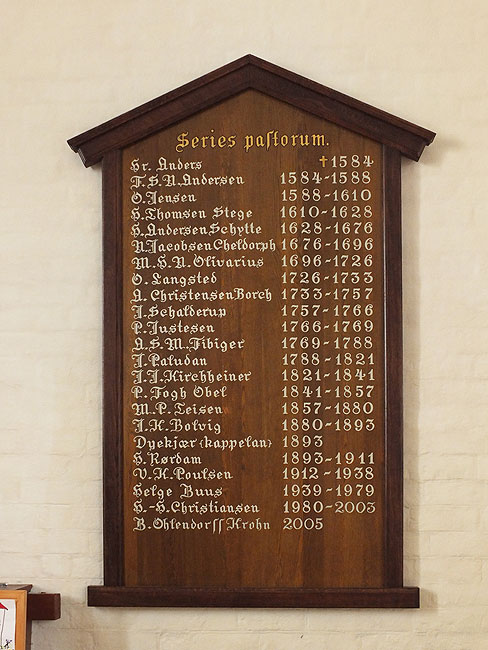 Series paſtorum.
Hr. Anders ✝1584
F.S.N. Andersen 1584-1588
O. Jensen 1588-1610
H. Thomsen Stege 1610-1628
H. Andersen Schytte 1628-1676
N. Jacobsen Cheldorph 1676-1696
M.H.N. Olivarius 1696-1726
O. Langsted 1726-1733
A. Christensen Borch 1733-1757
J. Schalderup 1757-1766
P. Justesen 1766-1769
A.S.M. Fibiger 1769-1788
J. Paludan 1788-1821
J.J. Kirchheiner 1821-1841
P. Fogh Obel 1841-1857
M.P. Teisen 1857-1880
J.H. Bolvig 1880-1893
Dyekjær (kappelan) 1893
H. Rørdam 1893-1911
V.H. Poulsen 1912-1938
Helge Buus 1939-1979
H.-H. Christiansen 1980-2003
B. Ohlendorff Krohn 2005